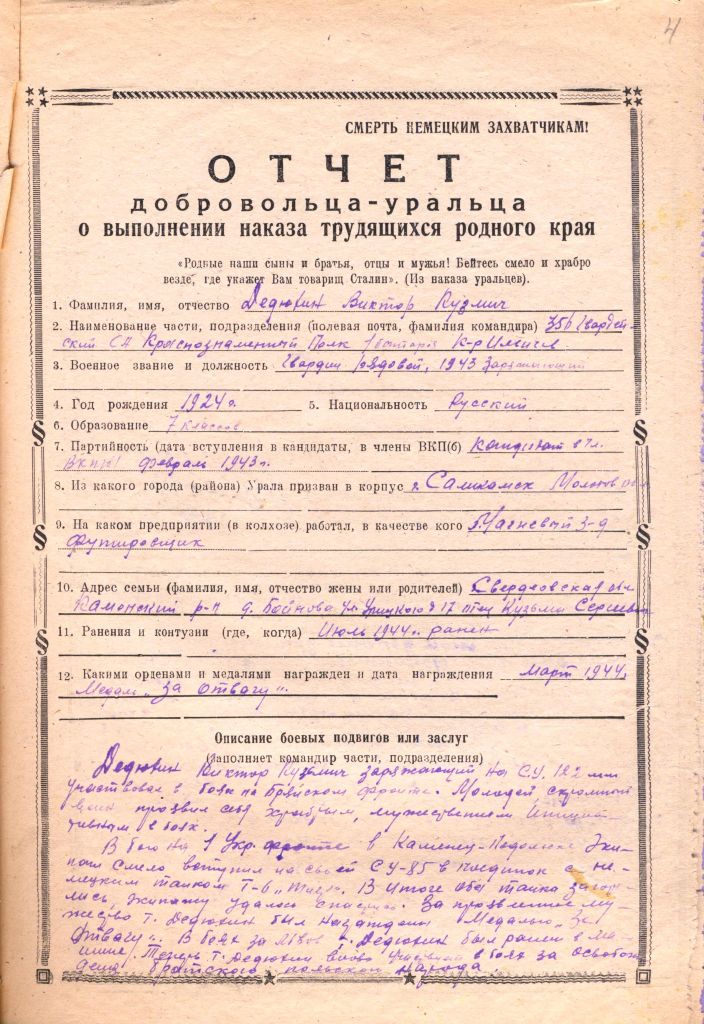 4
СМЕРТЬ НЕМЕЦКИМ ЗАХВАТЧИКАМ!
ОТЧЕТ
добровольца-уральца
о выполнении наказа трудящихся родного края
«Родные наши сыны и братья, отцы и мужья! Бейтесь смело и храбро
везде, где укажет Вам товарищ Сталин». (Из наказа уральцев).
1. Фамилия, имя, отчество Дедюхин Виктор Кузмич
2. Наименование части, подразделения (полевая почта, фамилия командира) 356 Гвардей-
ский СА Краснознаменный Полк батарея К-р
3. Военное звание и должность Гвардии рядовой, 1943 Заряжающий
4. Год рождения 1924 г. 5. Национальность Русский
6. Образование 7 классов
7. Партийность (дата вступления в кандидаты, в члены ВКП(б) Кандидат в чл.
ВКП(б) февраль 1943 г.
8. Из какого города (района) Урала призван в корпус г. Саликамск Молотов обл
9. На каком предприятии (в колхозе) работал, в качестве кого Магневый з-д
Футировщик
10. Адрес семьи (фамилия, имя, отчество жены или родителей) Свердловская обл
Каменский р-н д. Байнова ул Урицкого д 17 отец Кузьма Сергеевич
11. Ранения и контузии (где, когда) Июль 1944 г. ранен
12. Какими орденами и медалями награжден и дата награждения Март 1944 г
Медаль „За Отвагу".
Описание боевых подвигов или заслуг
(Заполняет командир части, подразделения)
Дедюхин Виктор Кузьмич заряжающий на С.У. 122 мм
участвовал в боях на Брянском фронте. Молодой скромный
воин проявил себя храбрым, мужественным Инициа-
тивным в боях.
В бою на 1 Укр фронте в Каменец-Подольске Эки-
паж Смело вступил на своей СУ-85 в поединок с не-
мецким танком Т-6 „Тигр". В итоге оба танка загоре-
лись, экипажу удалось спастись. За проявленное му-
жество т. Дедюхин был награжден Медалью „За
Отвагу". В боях за Львов т. Дедюхин был ранен в ма-
шине. Теперь т. Дедюхин вновь участвует в боях за освобож-
дение братского польского народа.